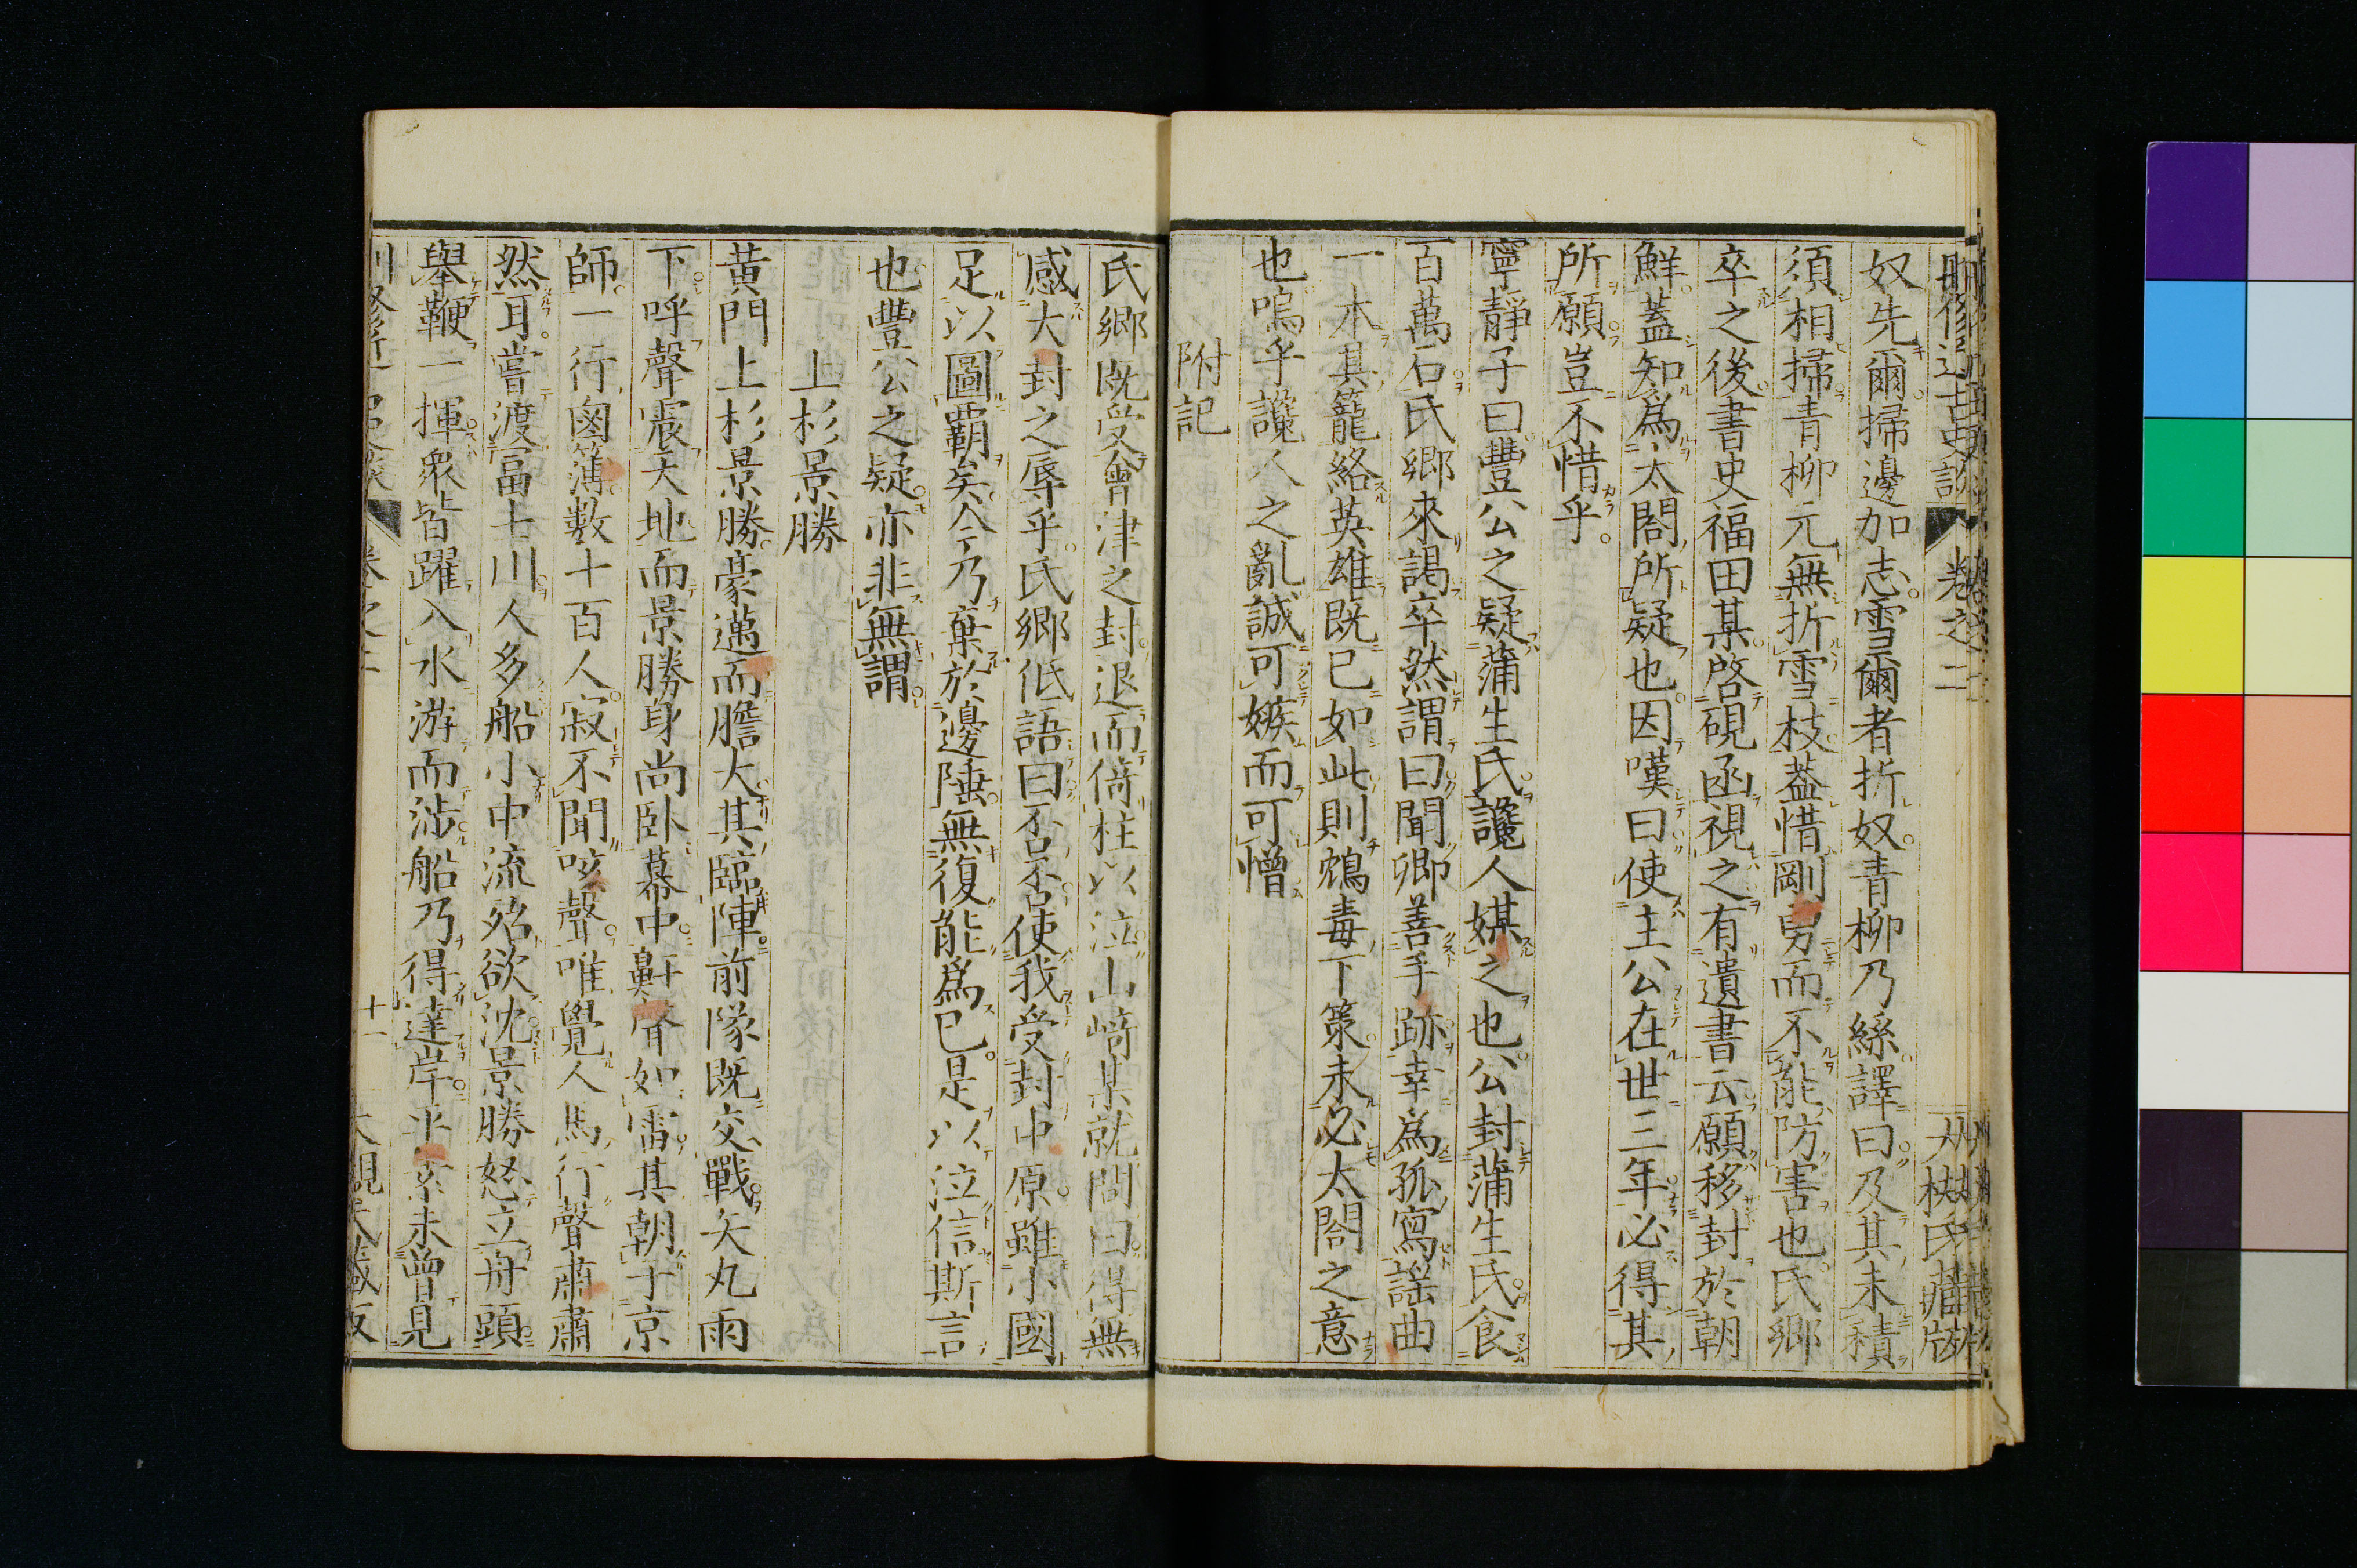 刪修近古史談 卷之二
奴先爾掃邊加志雪爾者折奴青柳乃絲譯曰及其未積
須相掃青柳元無折雪枝蓋惜剛勇而不能防害也氏鄉
卒之後書史福田某啓硯函視之有遺書云願移封於朝
鮮蓋知爲太閤所疑也因嘆曰使主公在世三年必得其
所願豈不惜乎
寧靜子曰豐公之疑蒲生氏讒人媒之也公封蒲生氏食
百萬石氏鄉來謁卒然謂曰聞卿善手跡幸爲孤寫謡曲
一本其籠絡英雄既已如此則鴆毒下策未必太閤之意
也嗚乎讒人之亂誠可嫉而可憎
附記
氏鄉既受會津之封退而倚柱以泣山﨑某就問曰得無
感大封之辱乎氏鄉低語曰否否使我受封中原雖小國
足以圖覇矣今乃棄於邊陲無復能爲已是以泣信斯言
也豐公之疑亦非無謂
上杉景勝
黃門上杉景勝豪邁而膽大其臨陣前隊既交戰矢丸雨
下呼聲震天地而景勝身尚臥幕中鼾聲如雷其朝于京
師一行鹵簿數十百人寂不聞咳聲唯覺人馬行聲肅肅
然耳嘗渡富士川人多船小中流殆欲沈景勝怒立舟頭
擧鞭一揮衆皆躍入水游而涉船乃得達岸平素未曾見
十一